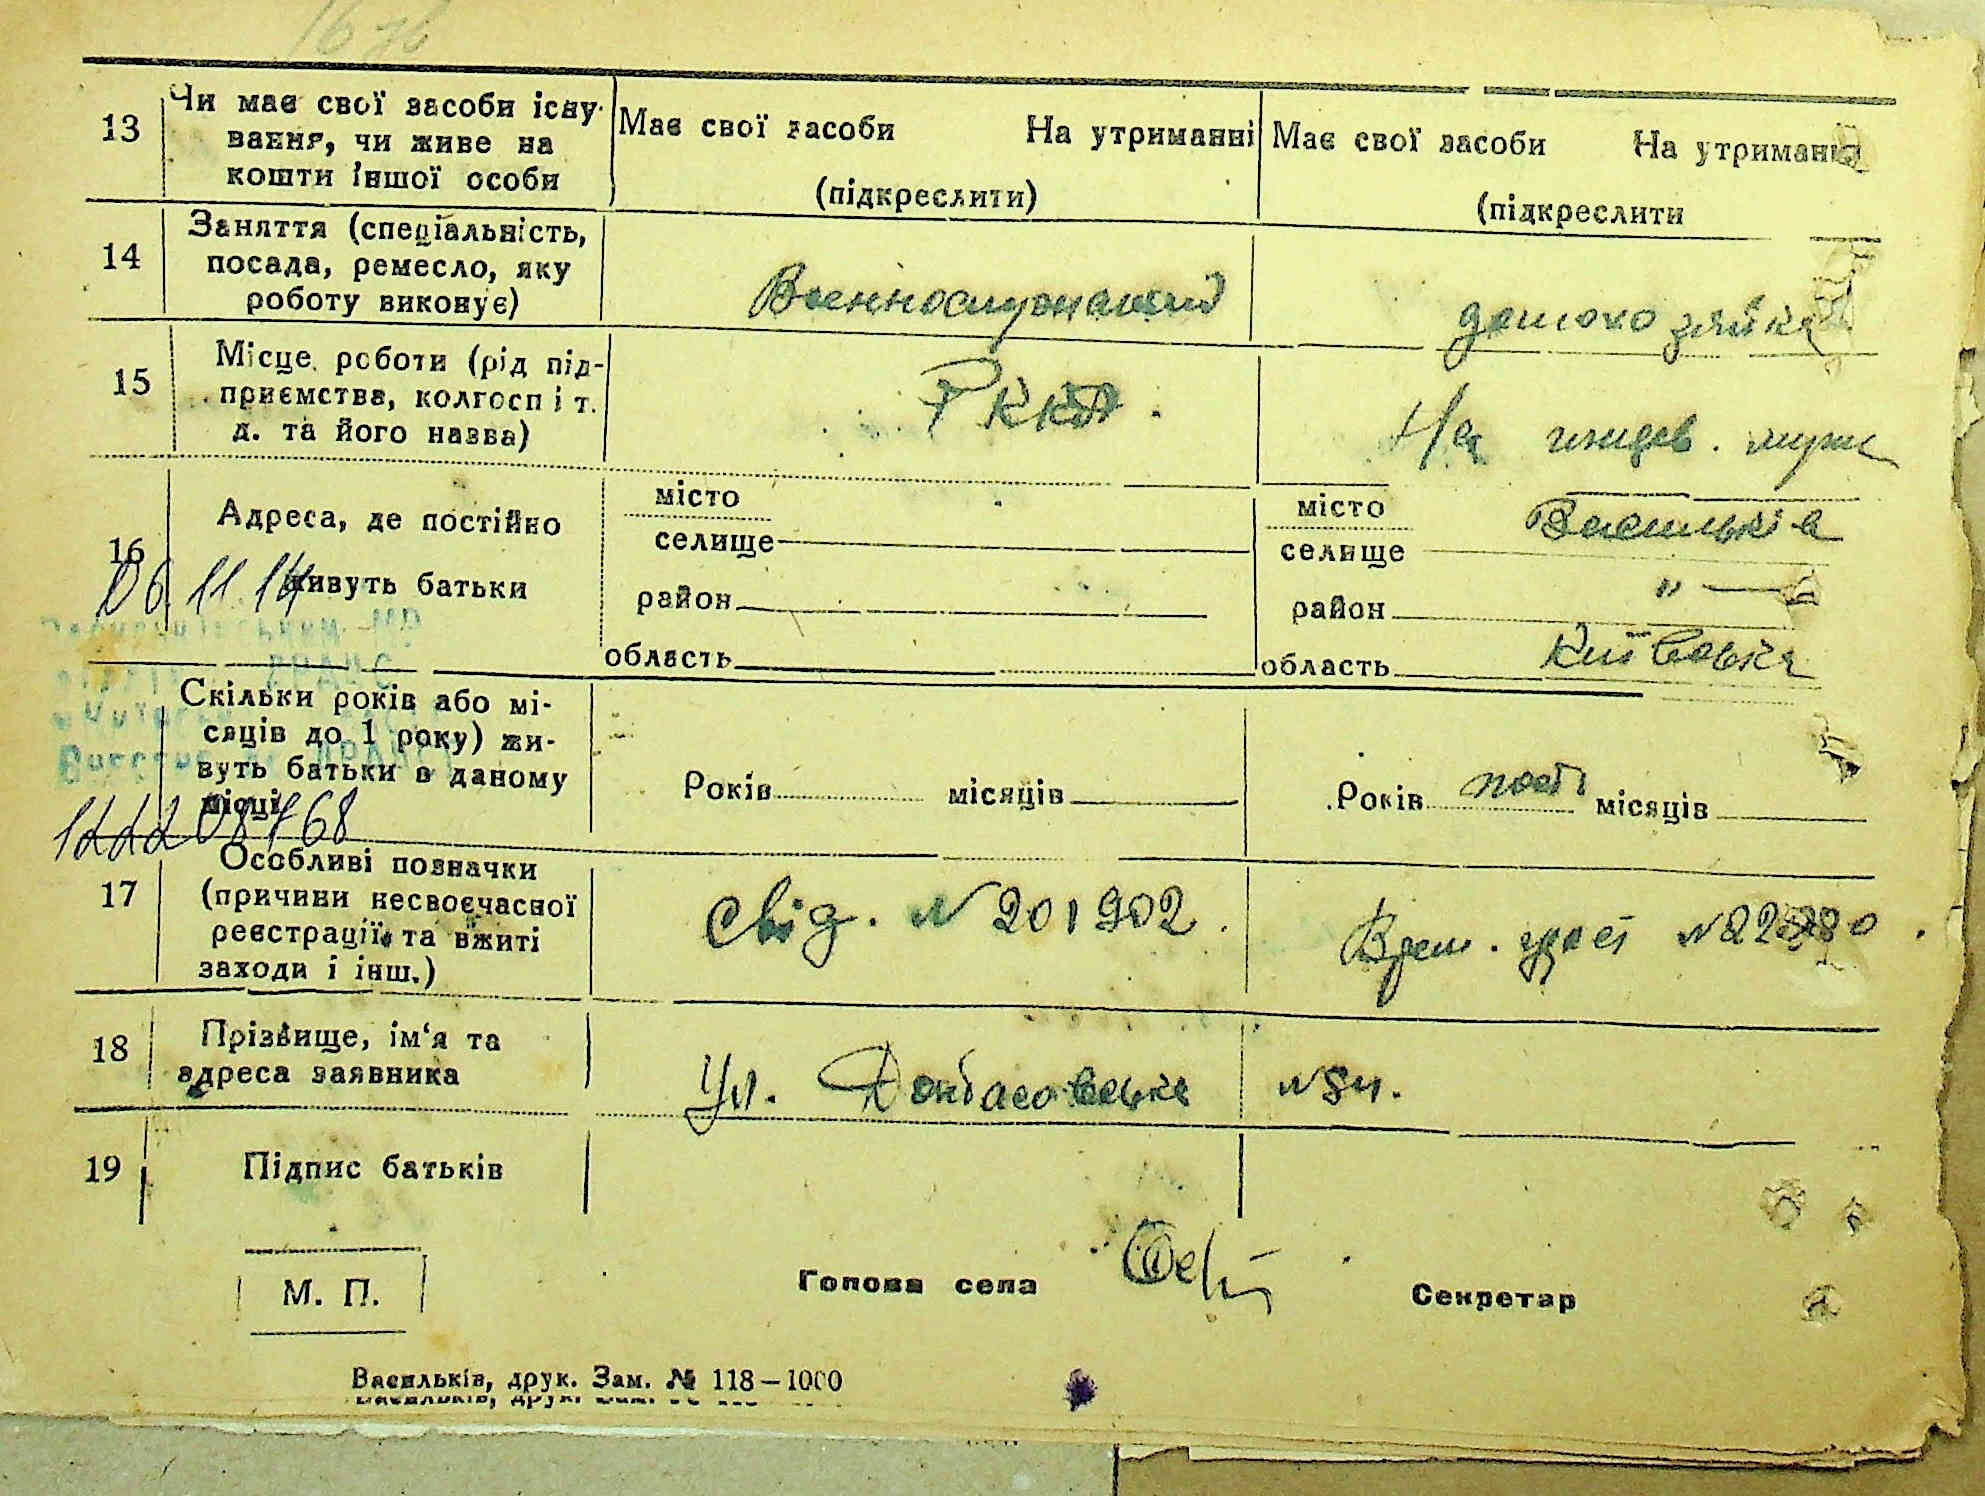 13 Чи має свої засоби існу- Має свої засоби На утриманні Має свої засоби На утриманні
вання, чи живе на
кошти іншої особи (підкреслити) (підкреслити
14 Заняття (спеціальність,
посада, ремесло, яку Военнослужащий домохозяйка
роботу виконує)
15 Місце роботи (рід під- РККА. На иждев. мужа
приємства, колгосп і т.
д. та його назва)
16 Адреса, де постійно місто місто Васильків
живуть батьки селище селище
06 11 14 район район " —
область область Київська
Скільки років або мі-
сяців до 1 року) жи-
вуть батьки в даному Років місяців Років пост місяців
місці
17 Особливі позначки
(причини несвоєчасної свід. N 201902. Врем. удост N
реєстрації та вжиті
заходи і інш.)
18 Прізвище, ім'я та
адреса заявника Ул. Донбасовська N84.
19 Підпис батьків
М. П. Голова села Секретар
Васильків, друк. Зам. № 118—1000